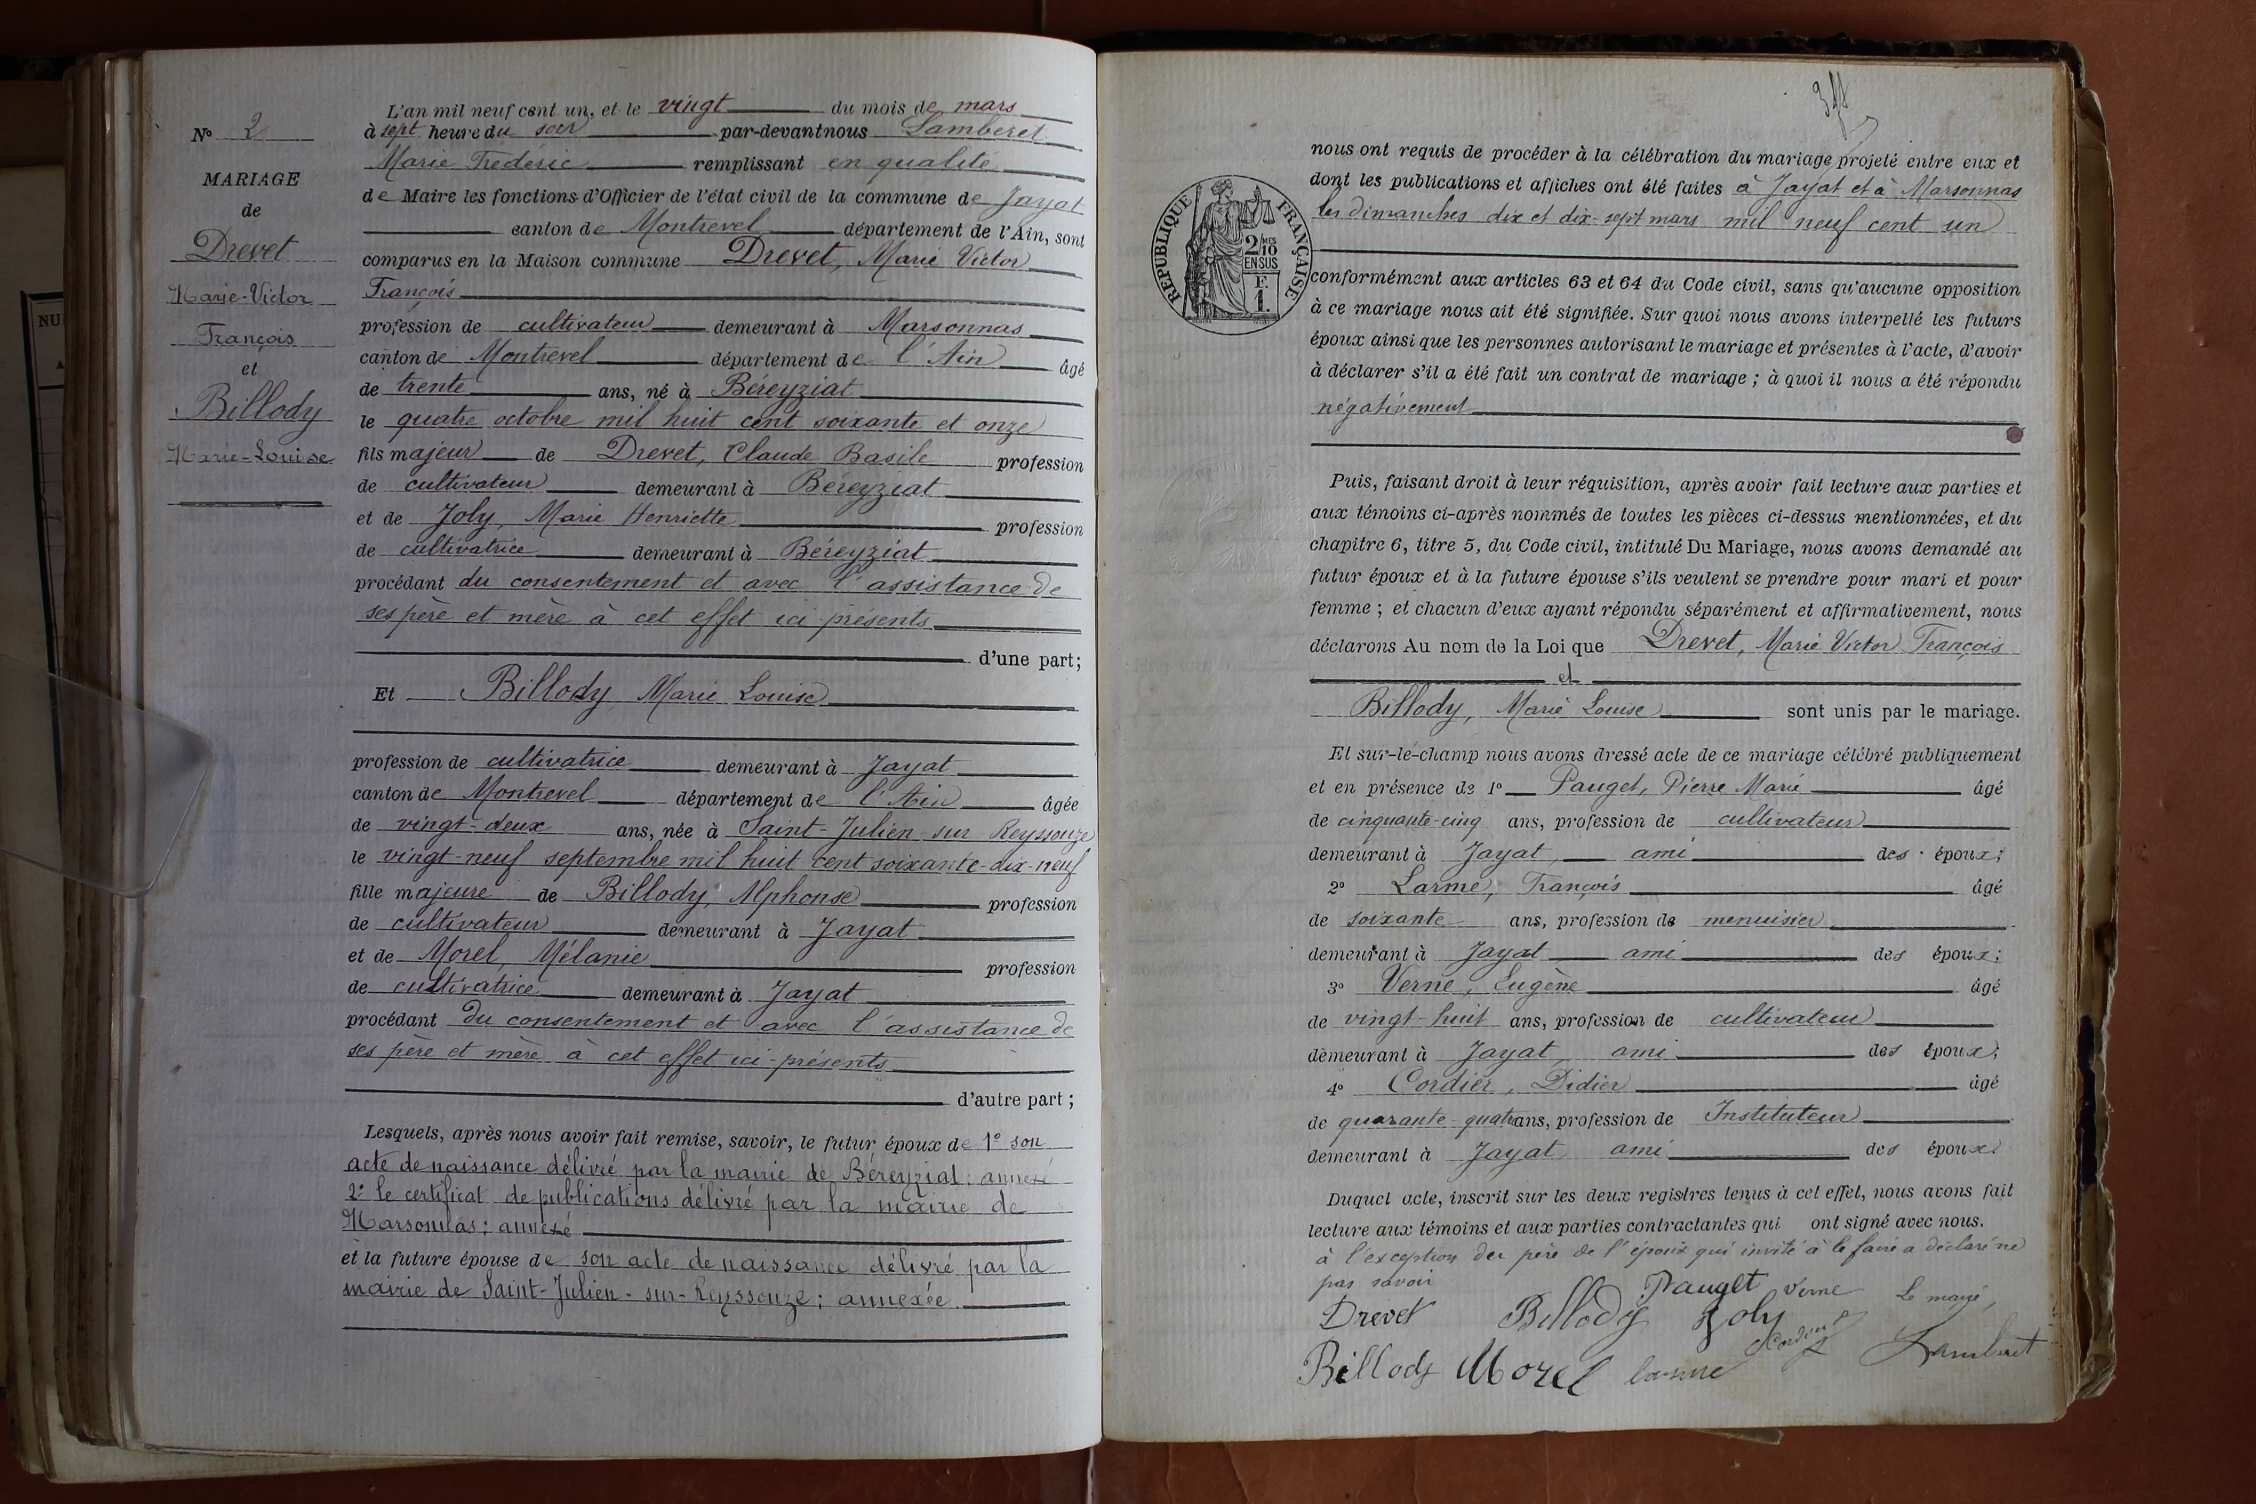 L'an mil neuf cent un, et le vingt du mois de mars
à sept heure du soir par-devant nous Lamberet
Marie Frédéric remplissant en qualité
de Maire les fonctions d'Officier de l'état civil de la commune de Jayat
canton de Montrevel département de l'Ain, sont
comparus en la Maison commune Drevet, Marie Victor
François
profession de cultivateur demeurant à Marsonnas
canton de Montrevel département de l'Ain âgé
de trente ans, né à Béreyziat
le quatre octobre mil huit cent soixante et onze
fils majeur de Drevet, Claude Basile profession
de cultivateur demeurant à Béreyziat
et de Joly, Marie Henriette profession
de cultivatrice demeurant à Béreyziat
procédant du consentement et avec l'assistance de
ses père et mère à cet effet ici présents
d'une part;
Et Billody Marie Louise
profession de cultivatrice demeurant à Jayat
canton de Montrevel département de l'Ain âgée
de vingt-deux ans, née à Saint-Julien sur Reyssouze
le vingt-neuf septembre mil huit cent soixante-dix-neuf
fille majeure de Billody, Alphonse profession
de cultivateur demeurant à Jayat
et de Morel, Mélanie profession
de cultivatrice demeurant à Jayat
procédant du consentement et avec l'assistance de
ses père et mère à cet effet ici-présents
d'autre part;
Lesquels, après nous avoir fait remise, savoir, le futur époux de 1º son
acte de naissance délivré par la mairie de Béreyziat; annexé
2º le certificat de publications délivré par la mairie de
Marsonnas; annexé
et la future épouse de son acte de naissance délivré par la
mairie de Saint-Julien-sur-Reyssouze; annexée.
Nº 2
MARIAGE
de
Drevet
Marie-Victor
François
et
Billody
Marie-Louise
nous ont requis de procéder à la célébration du mariage projeté entre eux et
dont les publications et affiches ont été faites à Jayat et à Marsonnas
les dimanches dix et dix-sept mars mil neuf cent un
RÉPUBLIQUE FRANÇAISE
2/10 MES
EN SUS
F.
1.
conformément aux articles 63 et 64 du Code civil, sans qu'aucune opposition
à ce mariage nous ait été signifiée. Sur quoi nous avons interpellé les futurs
époux ainsi que les personnes autorisant le mariage et présentes à l'acte, d'avoir
à déclarer s'il a été fait un contrat de mariage; à quoi il nous a été répondu
négativement
Puis, faisant droit à leur réquisition, après avoir fait lecture aux parties et
aux témoins ci-après nommés de toutes les pièces ci-dessus mentionnées, et du
chapitre 6, titre 5, du Code civil, intitulé Du Mariage, nous avons demandé au
futur époux et à la future épouse s'ils veulent se prendre pour mari et pour
femme; et chacun d'eux ayant répondu séparément et affirmativement, nous
déclarons Au nom de la Loi que Drevet, Marie Victor François
et
Billody, Marie Louise sont unis par le mariage.
Et sur-le-champ nous avons dressé acte de ce mariage célébré publiquement
et en présence de 1º Pauget, Pierre Marie âgé
de cinquante-cinq ans, profession de cultivateur
demeurant à Jayat, ami des époux;
2º Larme, François âgé
de soixante ans, profession de menuisier
demeurant à Jayat ami des époux;
3º Verne, Eugène âgé
de vingt-huit ans, profession de cultivateur
demeurant à Jayat, ami des époux;
4º Cordier, Didier âgé
de quarante-quatre ans, profession de Instituteur
demeurant à Jayat ami des époux
Duquel acte, inscrit sur les deux registres tenus à cet effet, nous avons fait
lecture aux témoins et aux parties contractantes qui ont signé avec nous.
à l'exception du père de l'époux qui invité à le faire a déclaré ne
pas savoir
Pauget Verne Le maire,
Drevet Billody Joly
Cordier Lamberet
Billody Morel Larme